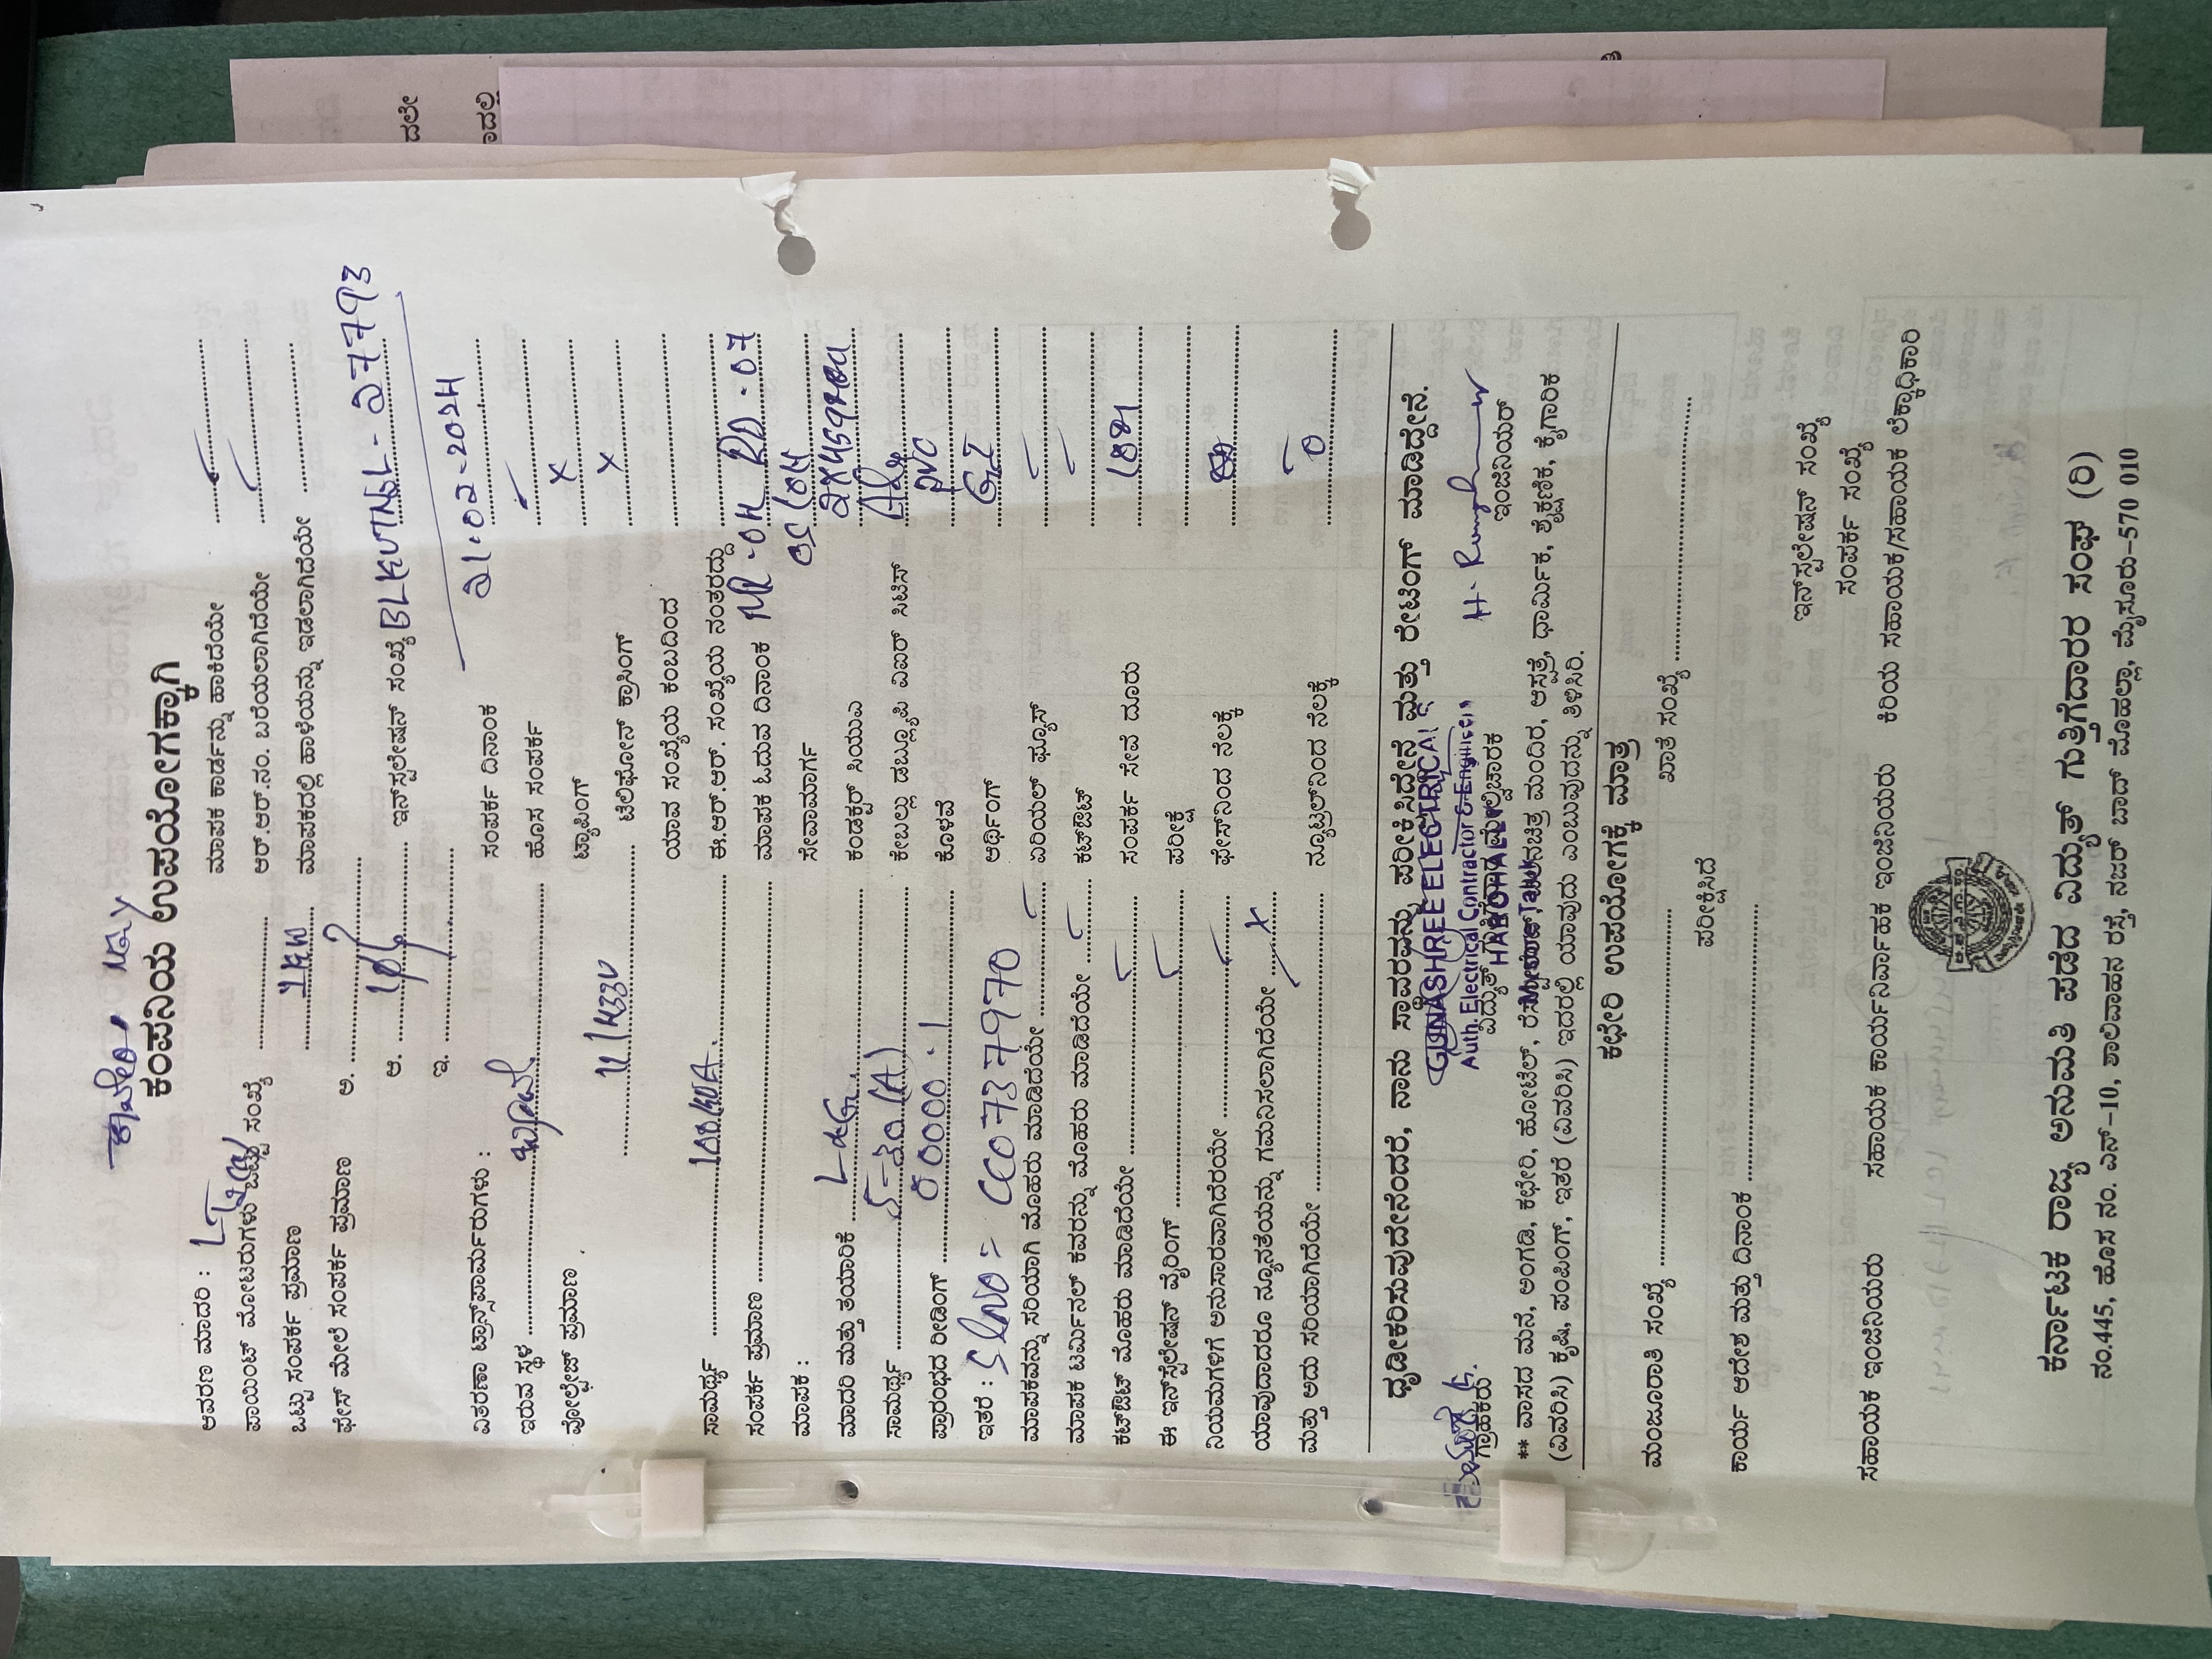 ಕಂಪನಿಯ ಉಪಯೋಗಕ್ಕಾಗಿ
ಆವರಣ ಮಾದರಿ : LT ಮಾಪಕ ಕಾರ್ಡನ್ನು ಹಾಕಿದೆಯೇ
ಪಾಯಿಂಟ್ ಮೋಟರುಗಳು ಒಟ್ಟು ಸಂಖ್ಯೆ ಆರ್.ಆರ್.ನಂ. ಬರೆಯಲಾಗಿದೆಯೇ
ಒಟ್ಟು ಸಂಪರ್ಕ ಪ್ರಮಾಣ 1KW ಮಾಪಕದಲ್ಲಿ ಹಾಳೆಯನ್ನು ಇಡಲಾಗಿದೆಯೇ
ಫೇಸ್ ಮೇಲೆ ಸಂಪರ್ಕ ಪ್ರಮಾಣ ಅ.
ಆ. ಇನ್‌ಸ್ಟಲೇಷನ್ ಸಂಖ್ಯೆ 27793
ಇ.
ವಿತರಣಾ ಟ್ರಾನ್ಸ್‌ಫಾರ್ಮರುಗಳು : ಸಂಪರ್ಕ ದಿನಾಂಕ 21-02-2024
ಇರುವ ಸ್ಥಳ ಹೊಸ ಸಂಪರ್ಕ
ವೋಲ್ಟೇಜ್ ಪ್ರಮಾಣ ಟ್ಯಾಪಿಂಗ್ X
11/433V ಟೆಲಿಫೋನ್ ಕ್ರಾಸಿಂಗ್ X
ಯಾವ ಸಂಖ್ಯೆಯ ಕಂಬದಿಂದ
ಸಾಮರ್ಥ್ಯ 100KVA. ಈ.ಆರ್.ಆರ್. ಸಂಖ್ಯೆಯ ನಂತರದ್ದು
ಸಂಪರ್ಕ ಪ್ರಮಾಣ ಮಾಪಕ ಓದುವ ದಿನಾಂಕ MR-04 RD-07
ಮಾಪಕ : ಸೇವಾಮಾರ್ಗ
ಮಾದರಿ ಮತ್ತು ತಯಾರಿಕೆ L&G. ಕಂಡಕ್ಟರ್ ಸಿಯುಎ
ಸಾಮರ್ಥ್ಯ 5-30(A) ಕೇಬಲ್ಲು ಡಬ್ಲ್ಯೂಪಿ ವಿಐಆರ್ ಸಿಟಿಸ್
ಪ್ರಾರಂಭದ ರೀಡಿಂಗ್ 00000.1 ಕೊಳವೆ PVC
ಇತರೆ : SLNO = CC0737970 ಆರ್ಥಿಂಗ್ GI
ಮಾಪಕವನ್ನು ಸರಿಯಾಗಿ ಮೊಹರು ಮಾಡಿದೆಯೇ ಏರಿಯಲ್ ಫ್ಯೂಸ್
ಮಾಪಕ ಟರ್ಮಿನಲ್ ಕವರನ್ನು ಮೊಹರು ಮಾಡಿದೆಯೇ ಕಟ್‌ಔಟ್
ಕಟ್‌ಔಟ್ ಮೊಹರು ಮಾಡಿದೆಯೇ ಸಂಪರ್ಕ ಸೇವೆ ದೂರು
ಈ ಇನ್‌ಸ್ಟಲೇಷನ್ ವೈರಿಂಗ್ ಪರೀಕ್ಷೆ
ನಿಯಮಗಳಿಗೆ ಅನುಸಾರವಾಗಿದೆರೆಯೇ ಫೇಸ್‌ನಿಂದ ನೆಲಕ್ಕೆ
ಯಾವುದಾದರೂ ನ್ಯೂನತೆಯನ್ನು ಗಮನಿಸಲಾಗಿದೆಯೇ X
ಮತ್ತು ಅದು ಸರಿಯಾಗಿದೆಯೇ ನ್ಯೂಟ್ರಲ್‌ನಿಂದ ನೆಲಕ್ಕೆ 0
ಧೃಡೀಕರಿಸುವುದೇನೆಂದರೆ, ನಾನು ಸ್ಥಾವರವನ್ನು ಪರೀಕ್ಷಿಸಿದ್ದೇನೆ ಮತ್ತು ರೇಟಿಂಗ್ ಮಾಡಿದ್ದೇನೆ.
GUNASHREE ELECTRICALS
Auth. Electrical Contractor & Engineers
ಗ್ರಾಹಕರು ವಿದ್ಯುತ್ ಮೇಲ್ವಿಚಾರಕ ಇಂಜಿನಿಯರ್
** ವಾಸದ ಮನೆ, ಅಂಗಡಿ, ಕಛೇರಿ, ಹೋಟೆಲ್, ಚಲನಚಿತ್ರ ಮಂದಿರ, ಆಸ್ಪತ್ರೆ, ಧಾರ್ಮಿಕ, ಶೈಕ್ಷಣಿಕ, ಕೈಗಾರಿಕ
(ವಿವರಿಸಿ) ಕೃಷಿ, ಪಂಪಿಂಗ್, ಇತರೆ (ವಿವರಿಸಿ) ಇದರಲ್ಲಿ ಯಾವುದು ಎಂಬುವುದನ್ನು ತಿಳಿಸಿರಿ.
ಕಛೇರಿ ಉಪಯೋಗಕ್ಕೆ ಮಾತ್ರ
ಮಂಜೂರಾತಿ ಸಂಖ್ಯೆ ಖಾತೆ ಸಂಖ್ಯೆ
ಪರೀಕ್ಷಿಸಿದೆ
ಕಾರ್ಯ ಆದೇಶ ಮತ್ತು ದಿನಾಂಕ
ಇನ್‌ಸ್ಟಲೇಷನ್ ಸಂಖ್ಯೆ
ಸಂಪರ್ಕ ಸಂಖ್ಯೆ
ಸಹಾಯಕ ಇಂಜಿನಿಯರು ಸಹಾಯಕ ಕಾರ್ಯನಿರ್ವಾಹಕ ಇಂಜಿನಿಯರು ಕಿರಿಯ ಸಹಾಯಕ/ಸಹಾಯಕ ಲೆಕ್ಕಾಧಿಕಾರಿ
ಕರ್ನಾಟಕ ರಾಜ್ಯ ಅನುಮತಿ ಪಡೆದ ವಿದ್ಯುತ್ ಗುತ್ತಿಗೆದಾರರ ಸಂಘ (ರಿ)
ನಂ.445, ಹೊಸ ನಂ. ಎನ್-10, ಶಾಲಿವಾಹನ ರಸ್ತೆ, ನಜರ್ ಬಾದ್ ಮೊಹಲ್ಲಾ, ಮೈಸೂರು-570 010